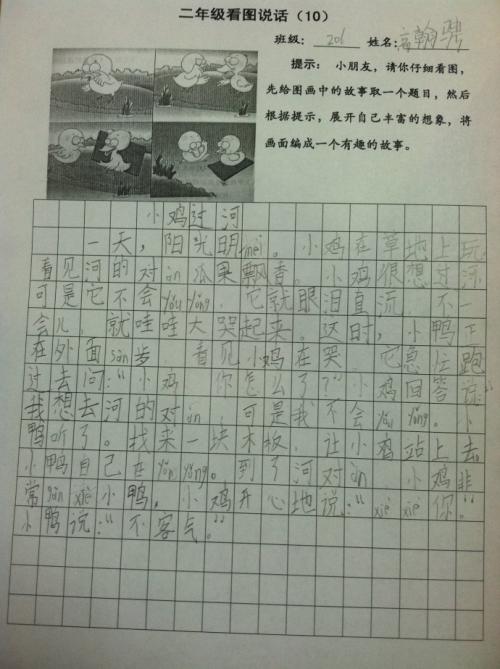 二年级看图说话（10）
班级：201 姓名：
提示：小朋友，请你仔细看图，
先给图画中的故事取一个题目，然后
根据提示，展开自己丰富的想象，将
画面编成一个有趣的故事。
小鸡过河
一天，阳光明mèi。小鸡在草地上玩
看见河的对àn瓜果飘香，小鸡很想过河
可是它不会yóu yǒng，它就眼泪直流，不一
会儿，就哇哇大哭起来，这时，小鸭正
在外面sàn步，看见小鸡在哭，它急忙跑
过去问：“小鸡，你怎么了？”小鸡回答说：“
我想去河的对àn，可是我不会yóu yǒng。小
鸭听了。找来一块木板，让小鸡站上去。
小鸭自己在yóu yǒng。到了河对àn，小鸡非
常gǎn xiè小鸭，小鸡开心地说：“xiè xiè你。”
小鸭说：“不客气。”